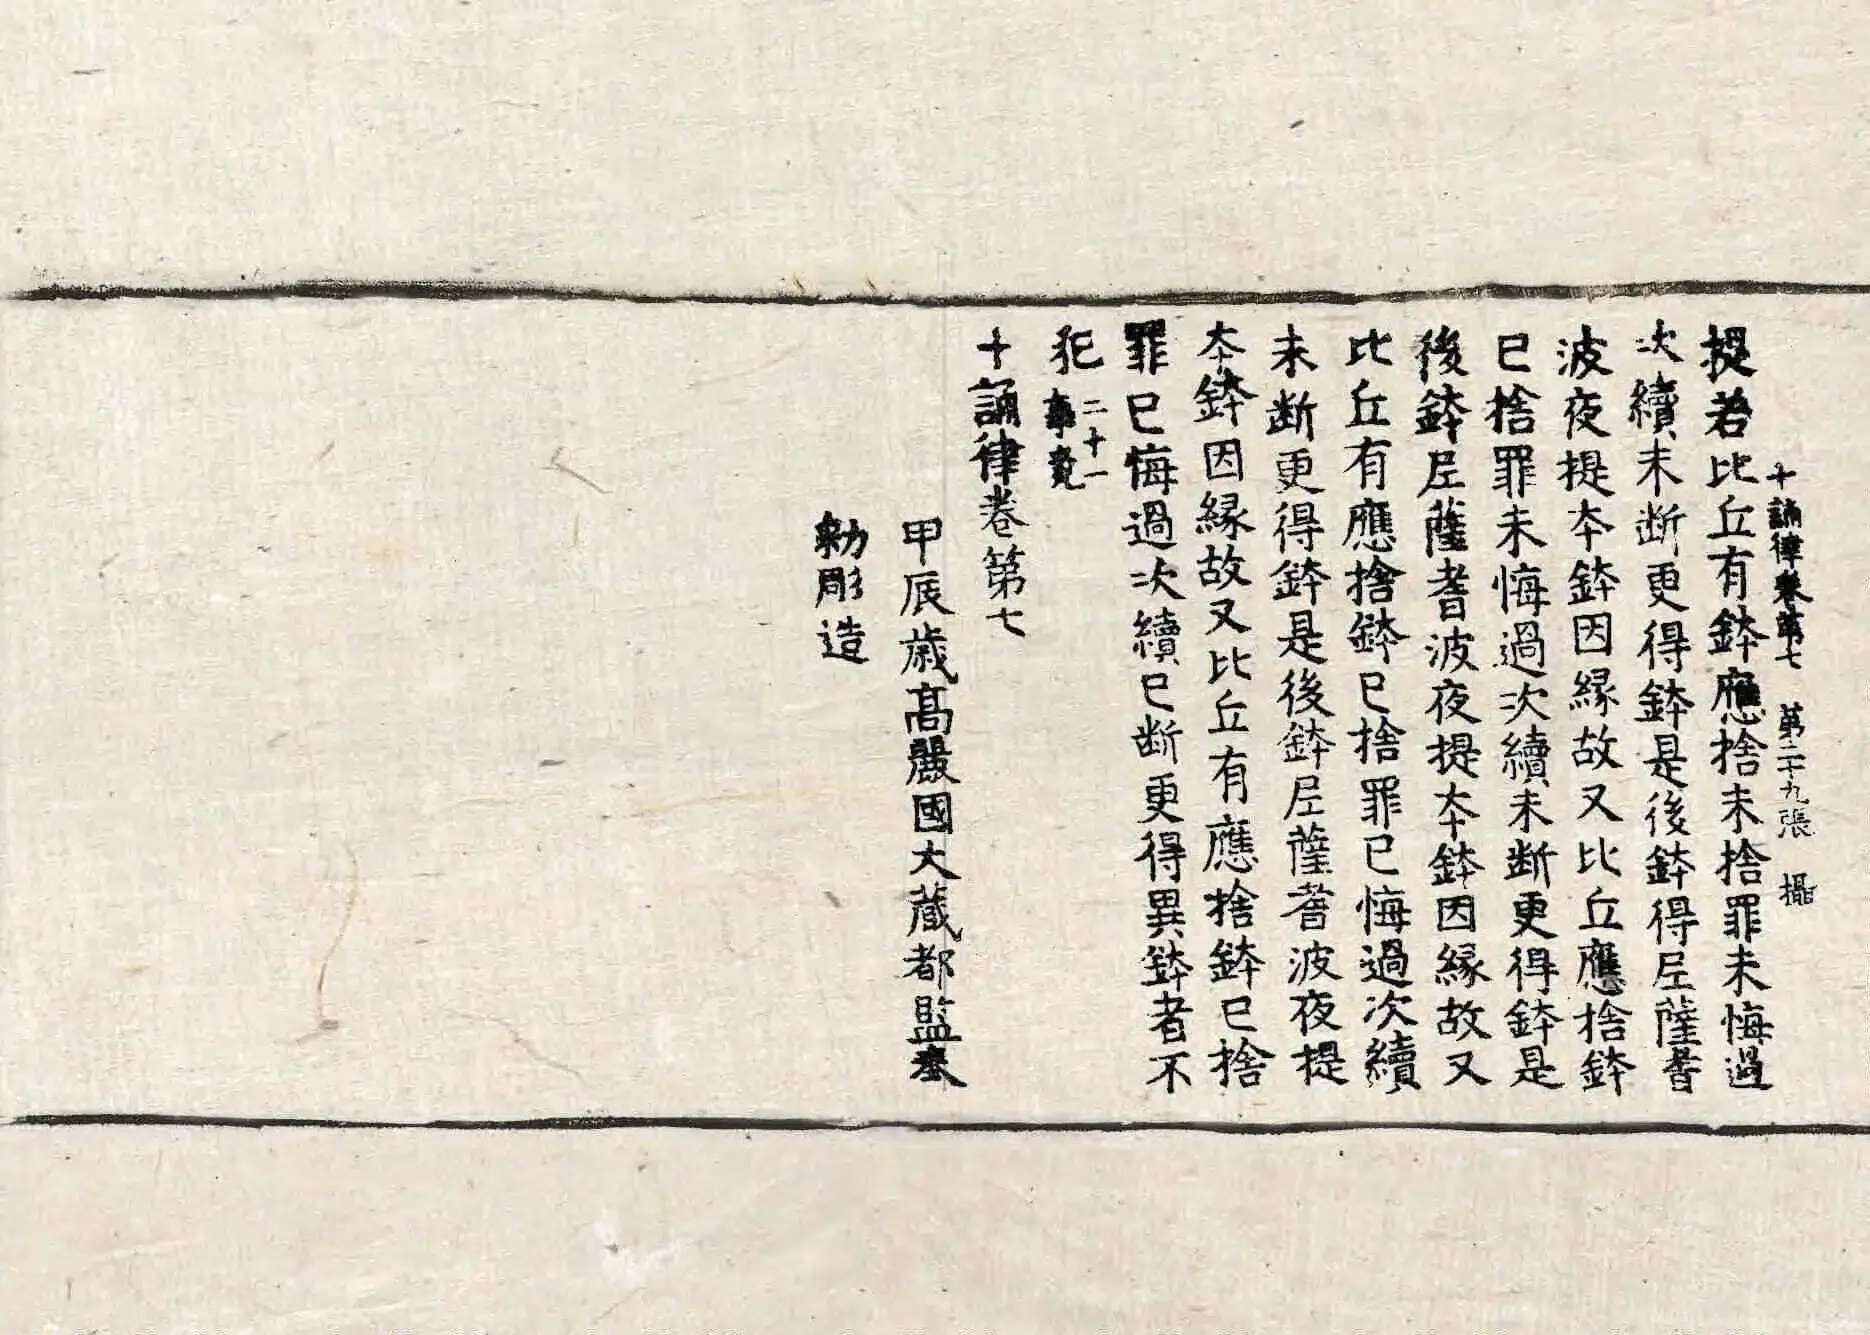 十誦律卷第七 第二十九張 攝
提若比丘有鉢應捨未捨罪未悔過
次續未断更得鉢是後鉢得尼薩耆
波夜提夲鉢因縁故又比丘應捨鉢
已捨罪未悔過次續未断更得鉢是
後鉢尼薩耆波夜提夲鉢因縁故又
比丘有應捨鉢已捨罪已悔過次續
未断更得鉢是後鉢尼薩耆波夜提
夲鉢因縁故又比丘有應捨鉢已捨
罪已悔過次續已断更得異鉢者不
犯 二十一事竟
十誦律卷第七
甲辰歳高麗國大藏都監奉
勑彫造